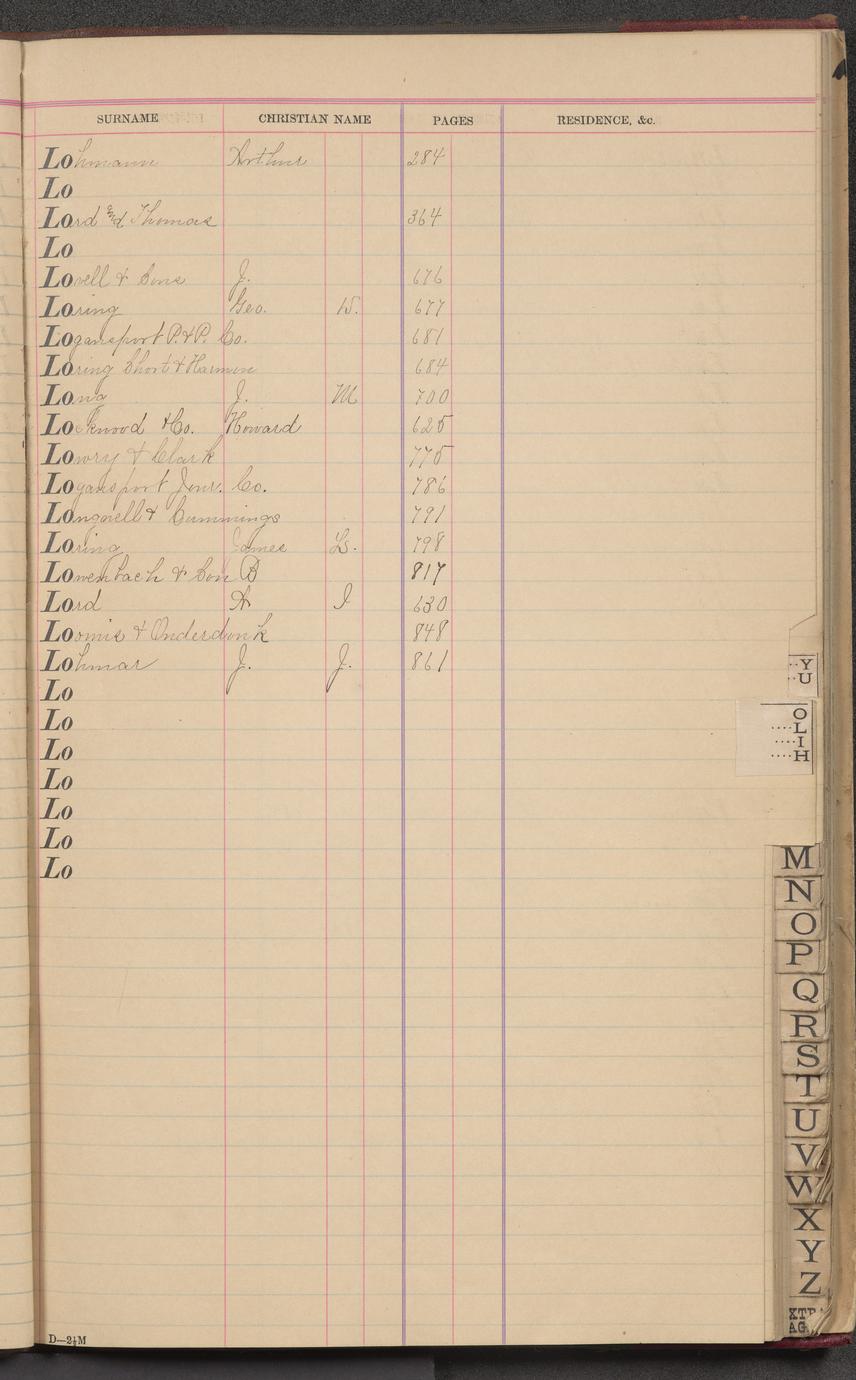 SURNAME CHRISTIAN NAME PAGES RESIDENCE, &c.
Lohmann Arthur 284
Lo
Lord and Thomas 364
Lo
Lovell & Sons J. 676
Loring Geo. W. 677
Logansport P. & P. Co. 681
Loring Short & Harmon 684
Long J. M 700
Lockwood & Co. Howard 625
Lowry & Clark 775
Logansport Jour. Co. 786
Longwell & Cummings 791
Loring James L. 798
Lowenbach & Son B 817
Lord A I 630
Loomis & Onderdonk 848
Lohmar J. J. 861
Lo
Lo
Lo
Lo
Lo
Lo
Lo
Y
U
O
L
I
H
M
N
O
P
Q
R
S
T
U
V
W
X
Y
Z
D—2½M